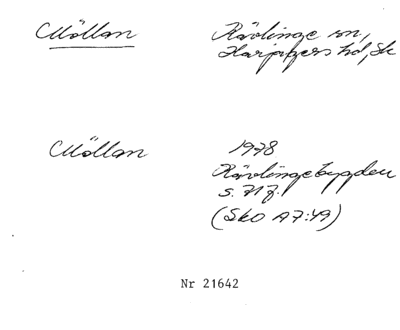 Möllan Kävlinge sn,
Harjagers hd, Sk
Möllan 1978
Kävlingebygden
s. 71 f.
(Sko A7:49)
Nr 21642